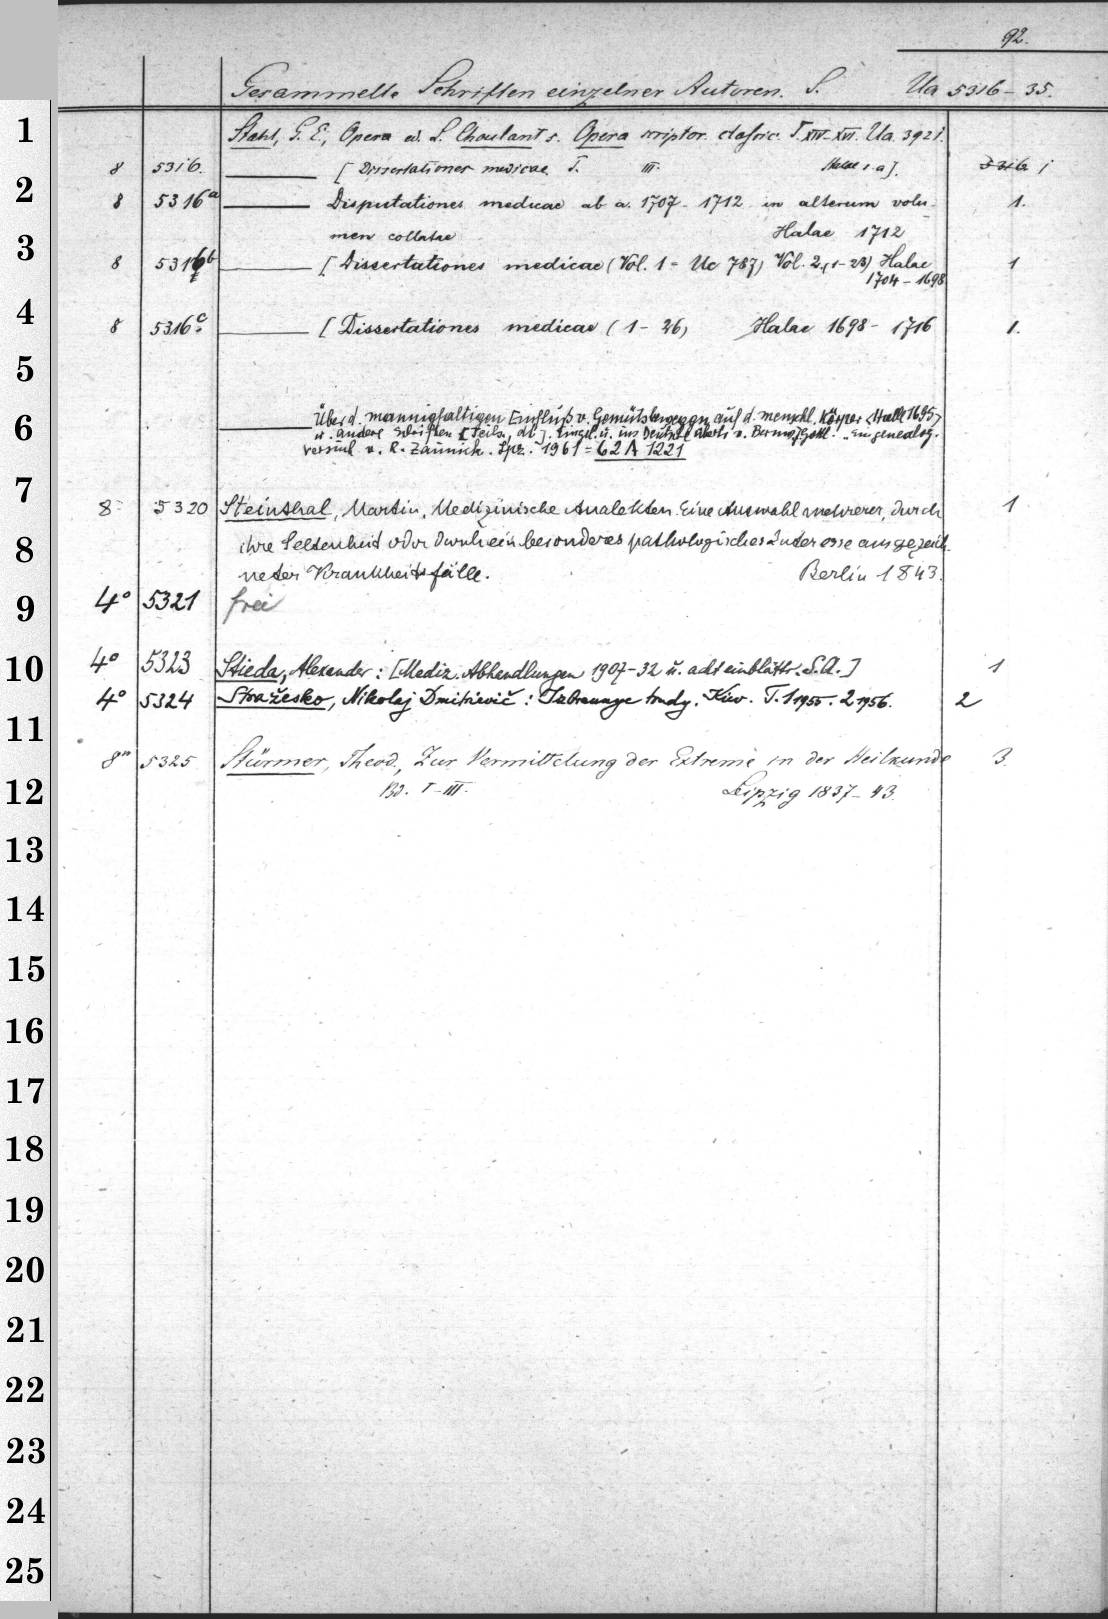 92.
Gesammelte Schriften einzelner Autoren. S. Ua 5316-35.
1
Stahl, G. E., Opera ed. L. Choulant s. Opera scriptor. classic. T. XIV-XVI. Ua. 3921.
8 5316. [Dissertationes medicae. T. III. Halae s. a]. 5316 1
2
8 5316a Disputationes medicae ab a. 1707-1712 in alterum volu-
1.
men collatae Halae 1712
3
8 5316b [Dissertationes medicae (Vol. 1 = Uc 787) Vol. 2, (1-23) Halae 1
1704-1698
4
8 5316c [Dissertationes medicae (1-26) Halae 1698-1716 1.
5
6
Über d. mannigfaltigen Einfluß v. Gemütsbeweggn auf d. menschl. Körper <Halle 1695>
u. andere Schriften [Teils., dt.]. Eingel. u. ins Deutsche übertr. v.
versehl v. R. Zaunick. Lpz. 1961 = 62 A 1221
7
8° 5320 Steinthal, Martin, Medizinische Analekten. Eine Auswahl mehrerer, durch 1
8
ihre Seltenheit oder durch ein besonderes pathologisches Interesse ausgezeich-
neter Krankheitsfälle. Berlin 1843.
9
4° 5321 frei
10
4° 5323 Stieda, Alexander: [Mediz. Abhandlungen 1907-32 u. acht einblättr. S.A.] 1
4° 5324 Stražesko, Nikolaj Dmitrievič: Izbrannye trudy. Kiev. T. 1 1955. 2 1956. 2
11
8° 5325 Stürmer, Theod., Zur Vermittelung der Extreme in der Heilkunde 3.
12
Bd. I-III. Leipzig 1837-43.
13
14
15
16
17
18
19
20
21
22
23
24
25